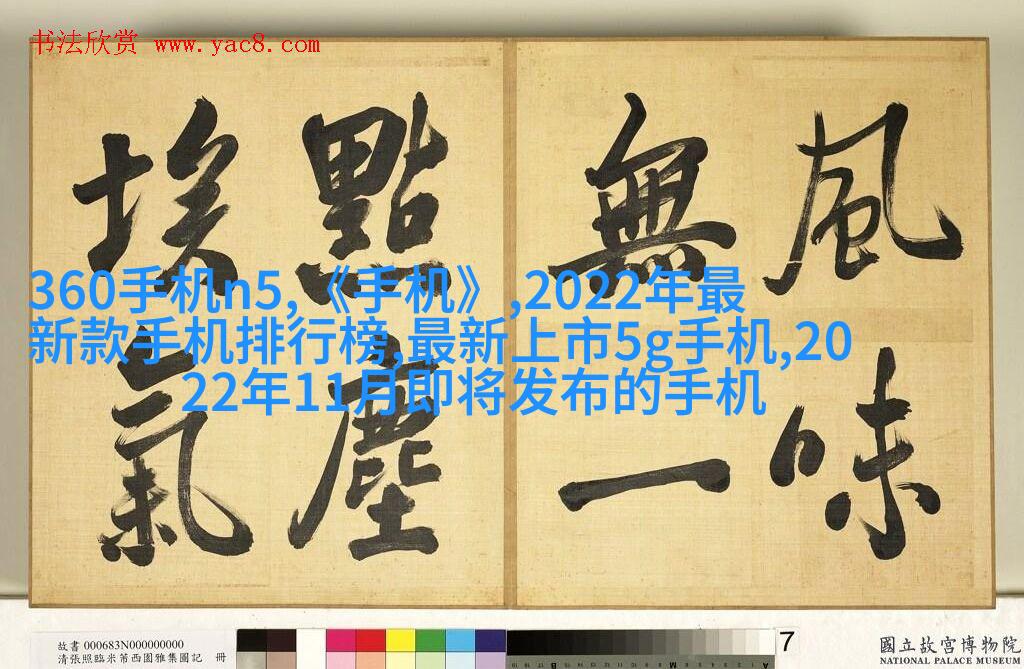 书法欣赏 www.yac8.com
風味
無一
點塵
埃氣
360手机n5,《手机》,2022年最
新款手机排行榜,最新上市5g手机,20
22年11月即将发布的手机
故書 000683N000000000
清張照臨米芾西園雅集圖記 冊
7
國立故宮博物院
NATIONAL PALACE MUSEUM